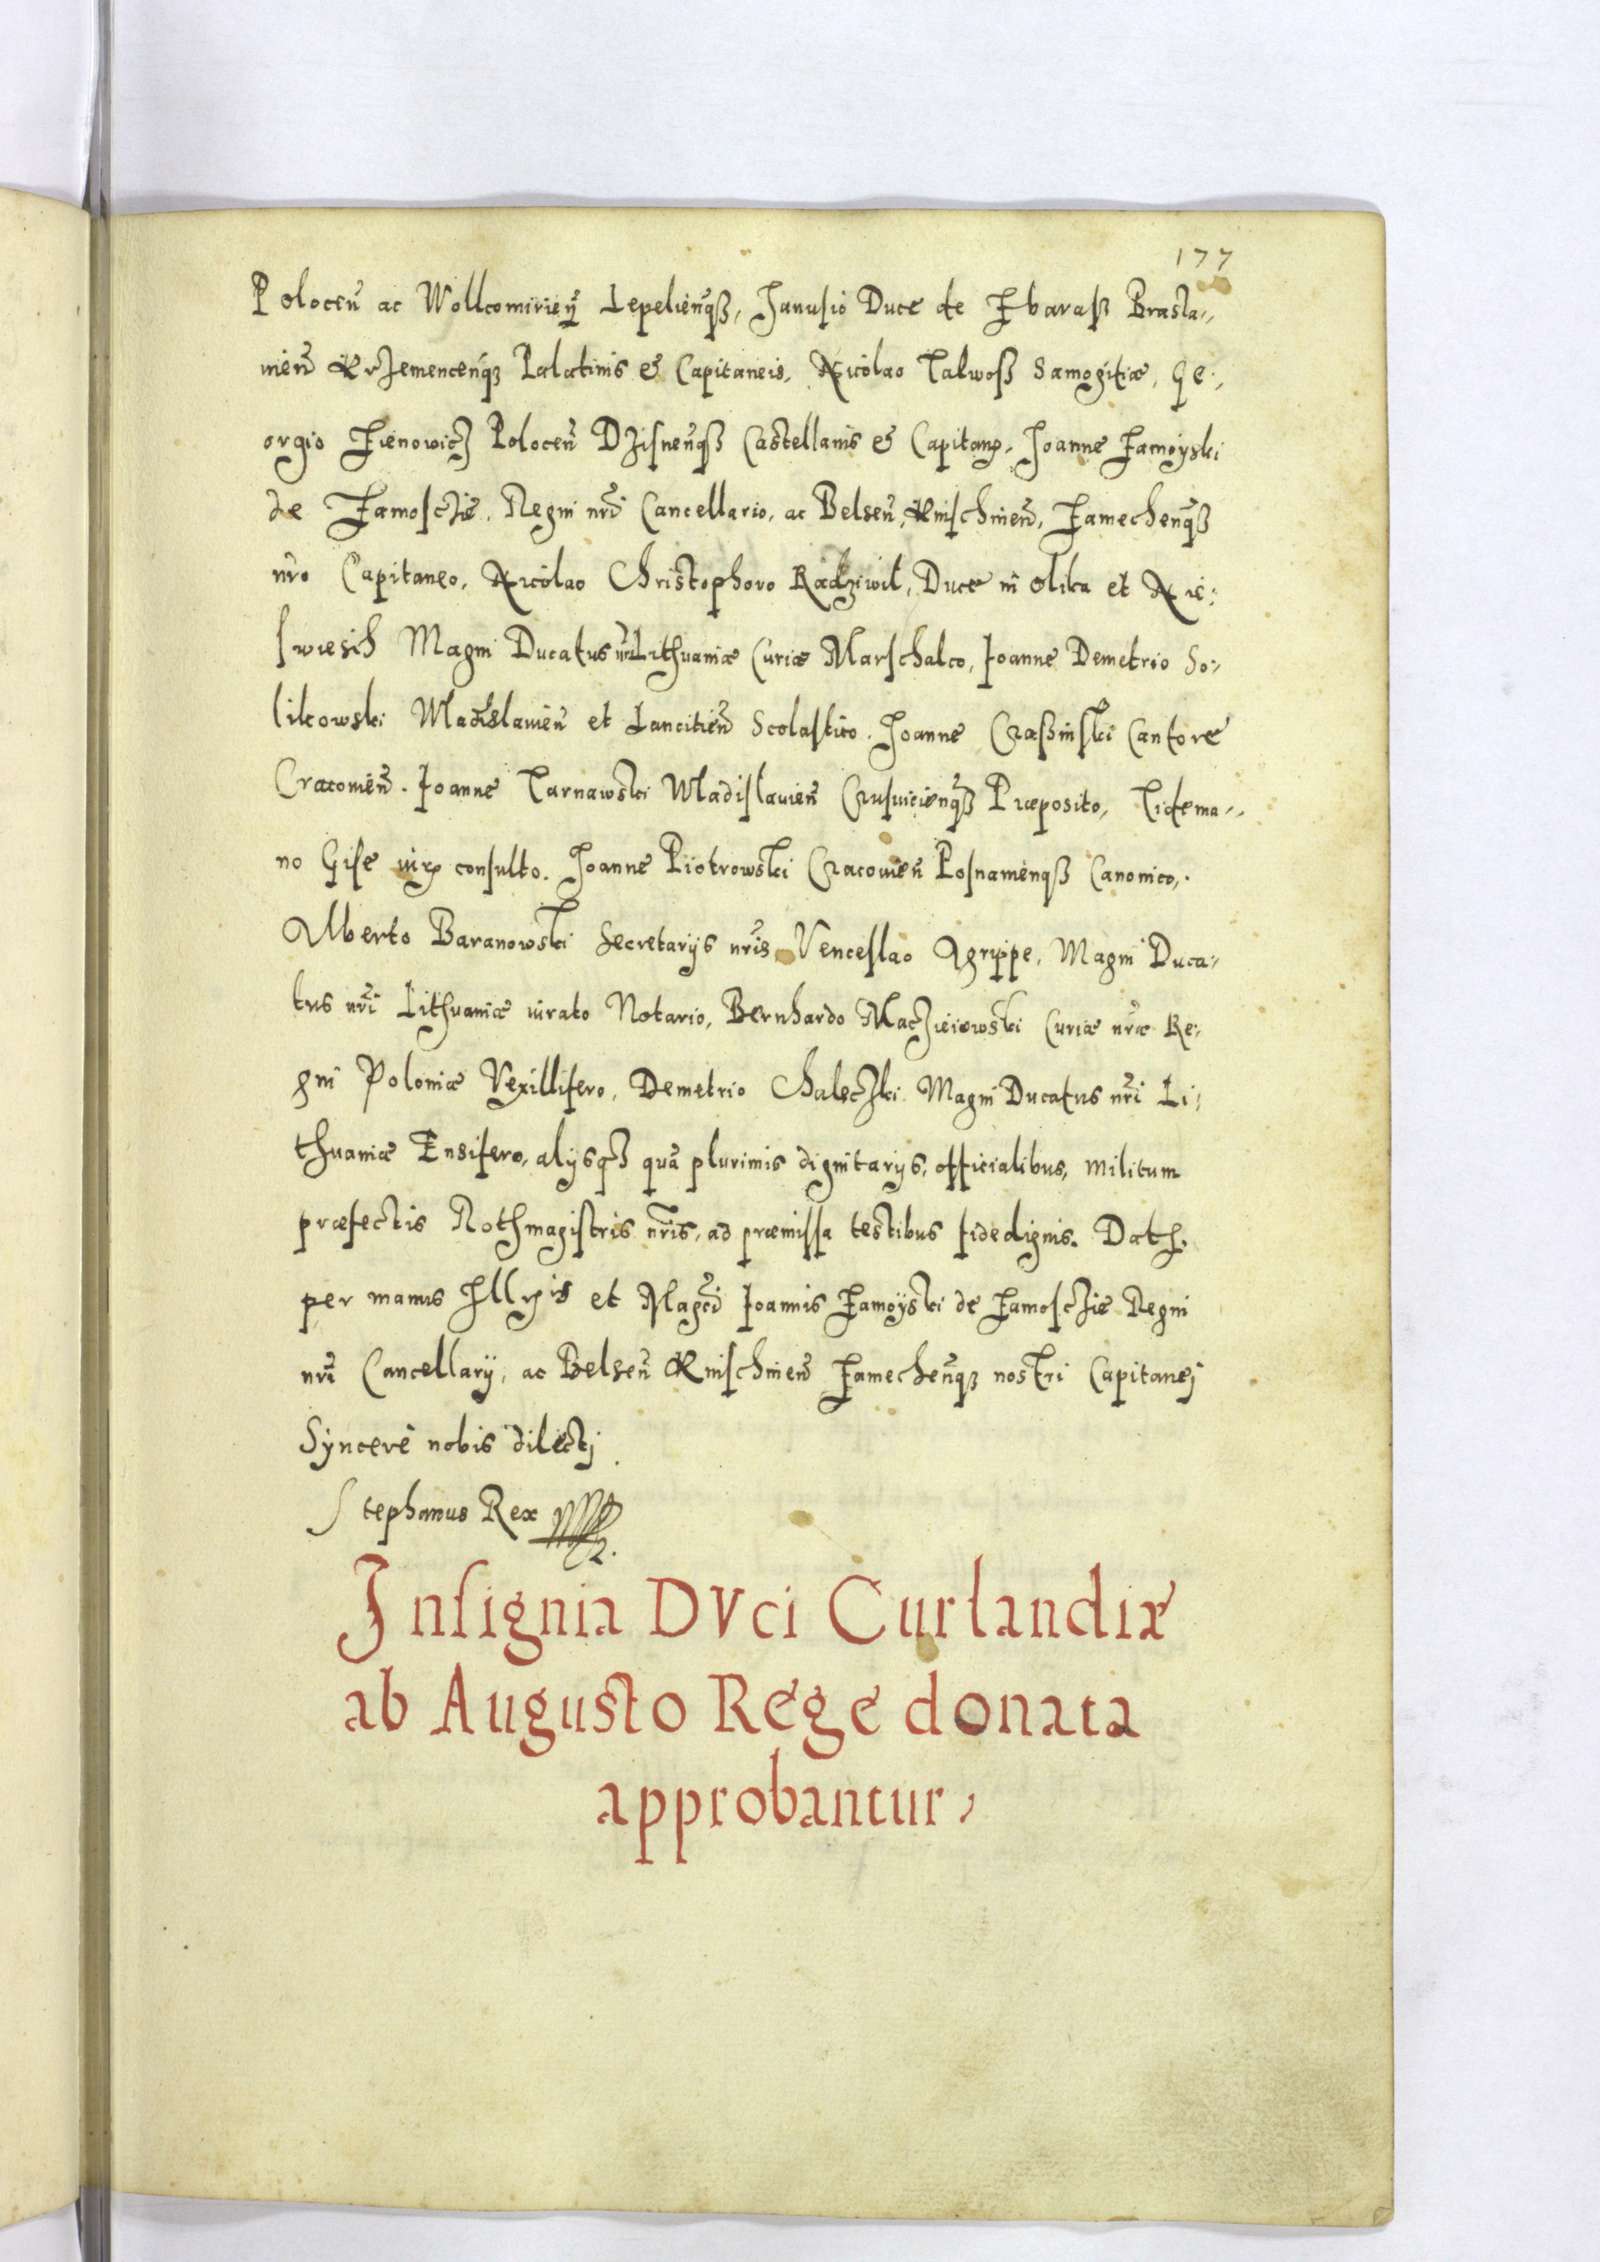 177
Polocen̄ ac Wollcomirien̄ Lepelien̄qȝ, Janusio Duce de Zbaraß Brasla-
uien̄ Krzemencen̄qȝ Palatinis & Capitaneis, Nicolao Talwoß Samogitiæ, Ge-
orgio Zienowicz Polocen̄ Dzisnen̄qȝ Castellanis & Capitan, Joanne Zamoyski
de Zamosczie, Regni nr̄i Cancellario, ac Belsen̄, Knischinen̄, Zamechen̄qȝ
nr̄o Capitaneo, Nicolao Christophoro Radziwil, Duce in Olika et Nie-
swiesih Magni Ducatus nr̄i Lithuaniæ Curiæ Marschalco, Joanne Demetrio So-
likowski Wladislauien̄ et Lancitien̄ Scolastico. Joanne Craßinski Cantore
Cracouien̄. Joanne Tarnawski Wladislauien̄ Crusuicien̄qȝ Præposito, Tidema-
no Gise consulto. Joanne Piotrowski Cracouien̄ Posnanien̄qȝ Canonico,
Alberto Baranowski Secretarijs nr̄is, Venceslao Agrippe, Magni Duca-
tus nr̄i Lithuaniæ iurato Notario, Bernhardo Maczieiowski Curiæ nr̄æ Re-
gni Poloniæ Vexillifero, Demetrio Chaleczki Magni Ducatus nr̄i Li-
thuaniæ Ensifero, alijsqȝ quā plurimis dignitarijs, officialibus, militum
præfectis Rothmagistris nr̄is, ad præmissa testibus fidedignis. Dat
per manus Ill et Magci Joannis Zamoyski de Zamosczie Regni
nr̄i Cancellarij, ac Belsen̄ Knischinen̄ Zamechen̄qȝ nostri Capitanej
Syncerè nobis dilectj.
Stephanus Rex
Insignia DVci Curlandiæ
ab Augusto Rege donata
approbantur